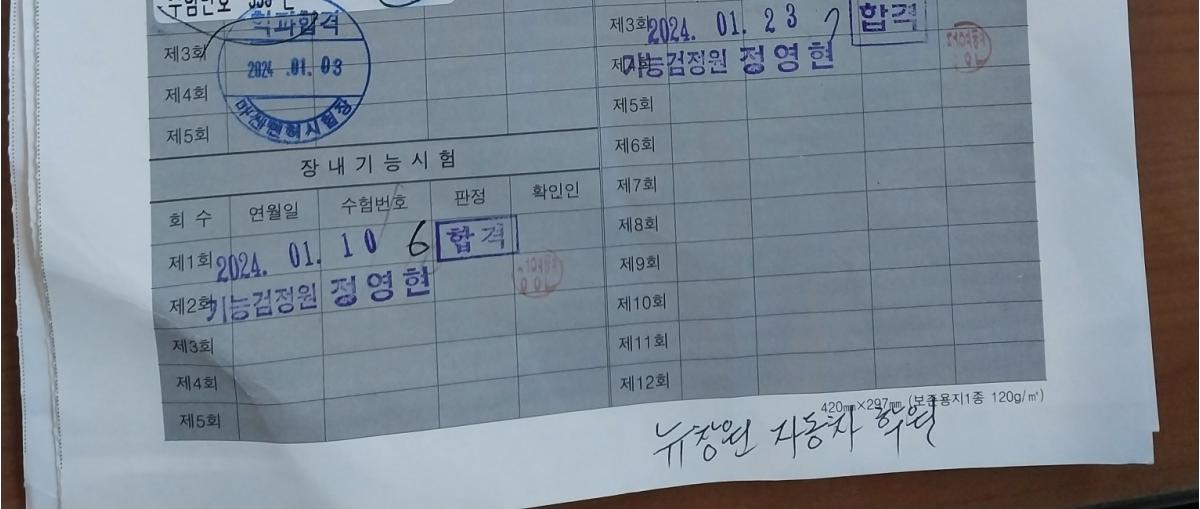 수험번호
학과합격
2024 .01. 03
마산면허시험장
제3회
제4회
제5회
장내기능시험
회 수 연월일 수험번호 판정 확인인
제1회 2024. 01. 10 6 합격
제2회 기능검정원 정영현
제3회
제4회
제5회
제3회 2024. 01. 23 7 합격
기능검정원 정영현
제5회
제6회
제7회
제8회
제9회
제10회
제11회
제12회
420㎜×297㎜ (보존용지1종 120g/㎡)
뉴창원 자동차 학원